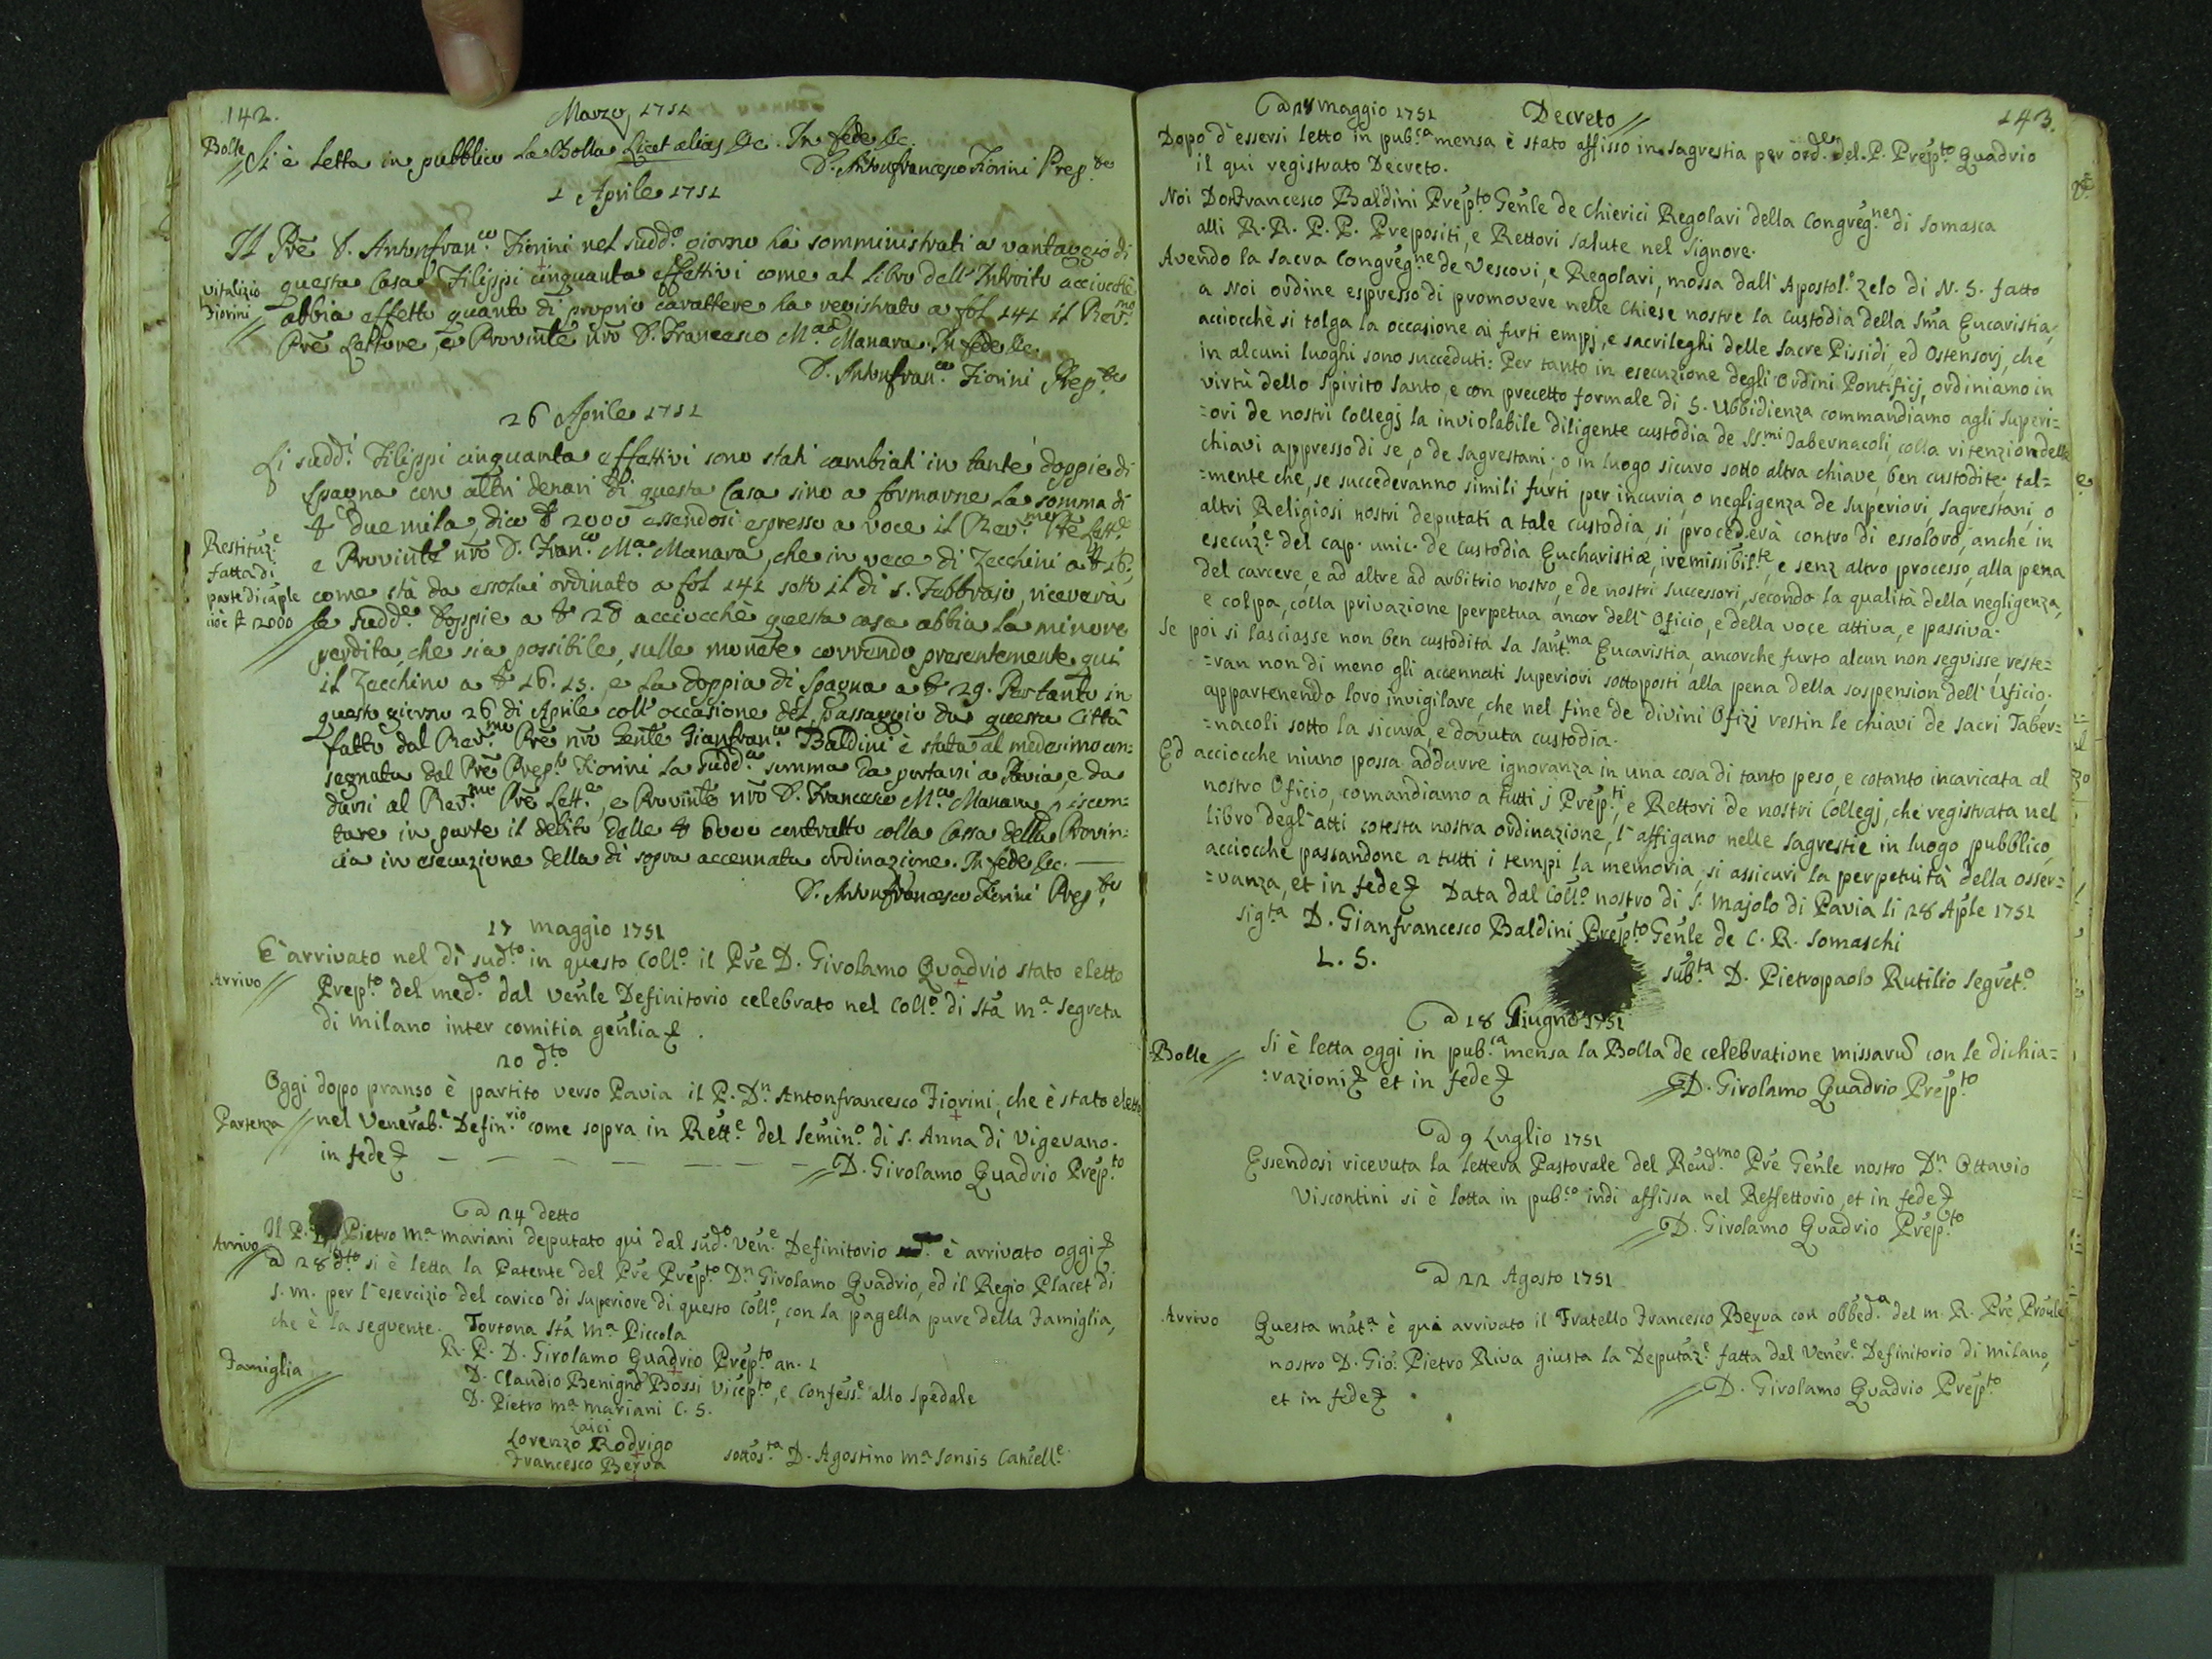 142.
Marzo, 1751
Bolle
Si è letta in pubblico la Bolla Licet alias &c. In fede &c.
D. Antonfrancesco Fiorini Prep.to
1 Aprile 1751
Il Pre D. Antonfran.co Fiorini nel sudd.o giorno hà somministrati a vantaggio di
Vitalizio
Fiorini
questa Casa Filippi cinquanta effettivi come al libro dell'Introito acciocchè
abbia effetto quanto di proprio carattere ha registrato a fol 141 il Rev.mo
Pre Lettore, e Provinle nrō D. Francesco M.a Manara. In fede &c.
D. Antonfran.co Fiorini Prep.to
26 Aprile 1751
Li sudd.i Filippi cinquanta effettivi sono stati cambiati in tante doppie di
Spagna con altri denari di questa Casa sino a formarne la somma di
₤ due mila, dico ₤ 2000 essendosi espresso a voce il Rev.mo Pre Lett.e
Restituz.e
fatta di
parte di caple
cioè ₤ 2000
e Provinle nrō D. Fran.co M.a Manara, che in vece di Zecchini a ₤ 16,
come stà da essolui ordinato a fol 141 sotto il dì 5. Febbrajo, riceverà
le sudd.e Doppie a ₤ 28 acciocchè questa casa abbia la minore
perdita, che sia possibile, sulle monete correndo presentemente qui
il Zecchino a ₤ 16.15., e la doppia di Spagna a ₤ 29. Per tanto in
questo giorno 26 di Aprile coll'occasione del passaggio da questa Città
fatto dal Rev.mo Pre nrō Genle Gianfran.co Baldini è stata al medesimo con=
segnata dal Pre Prep.to Fiorini la sudd.a somma da portarsi a Pavia, e da
darsi al Rev.mo Pre Lett.e, e Provinle nrō D. Francesco M.a Manara p iscon=
tare in parte il debito delle ₤ 6000 contratto colla Cassa della Provin=
cia in esecuzione della di sopra accennata ordinazione. In fede &c.
D. Antonfrancesco Fiorini Prep.to
17 maggio 1751
Arrivo
È arrivato nel dì sud.to in questo Coll.o il Pre D. Girolamo Quadrio stato eletto
Prep.to del med.o dal Venle Definitorio celebrato nel Coll.o di Sta M.a Segreta
di Milano inter comitia genlia &.
20 d.to
Oggi dopo pranso è partito verso Pavia il P. D.n Antonfrancesco Fiorini, che è stato eletto
Partenza
nel Venerab.e Defin.rio come sopra in Rett.e del Semin.o di S. Anna di Vigevano.
in fede &
D. Girolamo Quadrio Prep.to
a 24 detto
Arrivo
Il P. D. Pietro M.a Mariani deputato qui dal sud.o Ven.e Definitorio è arrivato oggi &
a 28 d.to si è letta la Patente del Pre Prep.to D.n Girolamo Quadrio, ed il Regio Placet di
S. M. per l'esercizio del carico di Superiore di questo Coll.o, con la pagella pure della Famiglia,
che è la seguente. Tortona Sta M.a Piccola
Famiglia
R. P. D. Girolamo Quadrio Prep.to an. 1
D. Claudio Benigno Bossi Vicep.to, e Confess.e allo Spedale
D. Pietro M.a Mariani C. S.
Laici
Lorenzo Rodrigo
Francesco Berva
sottos.ta D. Agostino M.a Sonsis Cancell.e
143.
a 28 maggio 1751
Decreto
Dopo d'essersi letto in pub.ca mensa è stato affisso in Sagrestia per ord.en del P. Prep.to Quadrio
il qui registrato Decreto.
Noi Don Francesco Baldini Prep.to Genle de Chierici Regolari della Congreg.ne di Somasca
alli R. R. P. P. Prepositi, e Rettori salute nel Signore.
Avendo la Sacra Congreg.ne de Vescovi, e Regolari, mossa dall'Apostol.o zelo di N. S. fatto
a Noi ordine espresso di promovere nelle Chiese nostre la Custodia della Sma Eucaristia,
acciocchè si tolga la occasione ai furti empj, e sacrileghi delle Sacre Pissidi, ed Ostensorj, che
in alcuni luoghi sono succeduti: Per tanto in esecuzione degli Ordini Pontificj, ordiniamo in
virtù dello Spirito Santo, e con precetto formale di S. Ubbidienza commandiamo agli Superi=
=ori de nostri Collegj la inviolabile diligente custodia de SS.mi Tabernacoli colla ritenzion delle
chiavi appresso di se, o de Sagrestani; o in luogo sicuro sotto altra chiave, ben custodite; tal=
=mente che, se succederanno simili furti per incuria, o negligenza de Superiori, Sagrestani, o
altri Religiosi nostri deputati a tale custodia, si procederà contro di essoloro, anche in
esecuz.e del cap. unic. de Custodia Eucharistiæ, iremissibil.te, e senz altro processo, alla pena
del carcere, e ad altre ad arbitrio nostro, e de nostri successori, secondo la qualità della negligenza,
e colpa, colla privazione perpetua ancor dell'Oficio, e della voce attiva, e passiva.
Se poi si lasciasse non ben custodita la Sant.ma Eucaristia, ancorche furto alcun non seguisse, reste=
=ran non di meno gli accennati Superiori sottoposti alla pena della sospension dell'Uficio;
appartenendo loro invigilare, che nel fine de divini Ofizj restin le chiavi de sacri Taber=
=nacoli sotto la sicura, e dovuta custodia.
Ed acciocche niuno possa addurre ignoranza in una cosa di tanto peso, e cotanto incaricata al
nostro Oficio, comandiamo a tutti j Prep.ti, e Rettori de nostri Collegj, che registrata nel
libro degl'atti cotesta nostra ordinazione, l'affigano nelle Sagrestie in luogo pubblico,
acciocche passandone a tutti i tempi la memoria, si assicuri la perpetuità della osser=
=vanza, et in fede & Data dal Coll.o nostro di S. Majolo di Pavia li 28 Aple 1751
sig.ta D. Gianfrancesco Baldini Prep.to Genle de C. R. Somaschi
L. S.
sub.ta D. Pietropaolo Rutilio Segret.o
a 18 Giugno 1751
Bolle
Si è letta oggi in pub.ca mensa la Bolla de celebratione missarū con le dichia=
=razioni & et in fede &
D. Girolamo Quadrio Prep.to
a 9 Luglio 1751
Essendosi ricevuta la lettera Pastorale del Revd.mo Pre Genle nostro D.n Ottavio
Viscontini si è letta in pub.co indi affissa nel Reffettorio, et in fede &
D. Girolamo Quadrio Prep.to
a 22 Agosto 1751
Arrivo
Questa mat.a è qui arrivato il Fratello Francesco Berva con obbed.a del m. R. Pre Provle
nostro D. Gio. Pietro Riva giusta la Deputaz.e fatta dal Vener.e Definitorio di Milano,
et in fede &
D. Girolamo Quadrio Prep.to